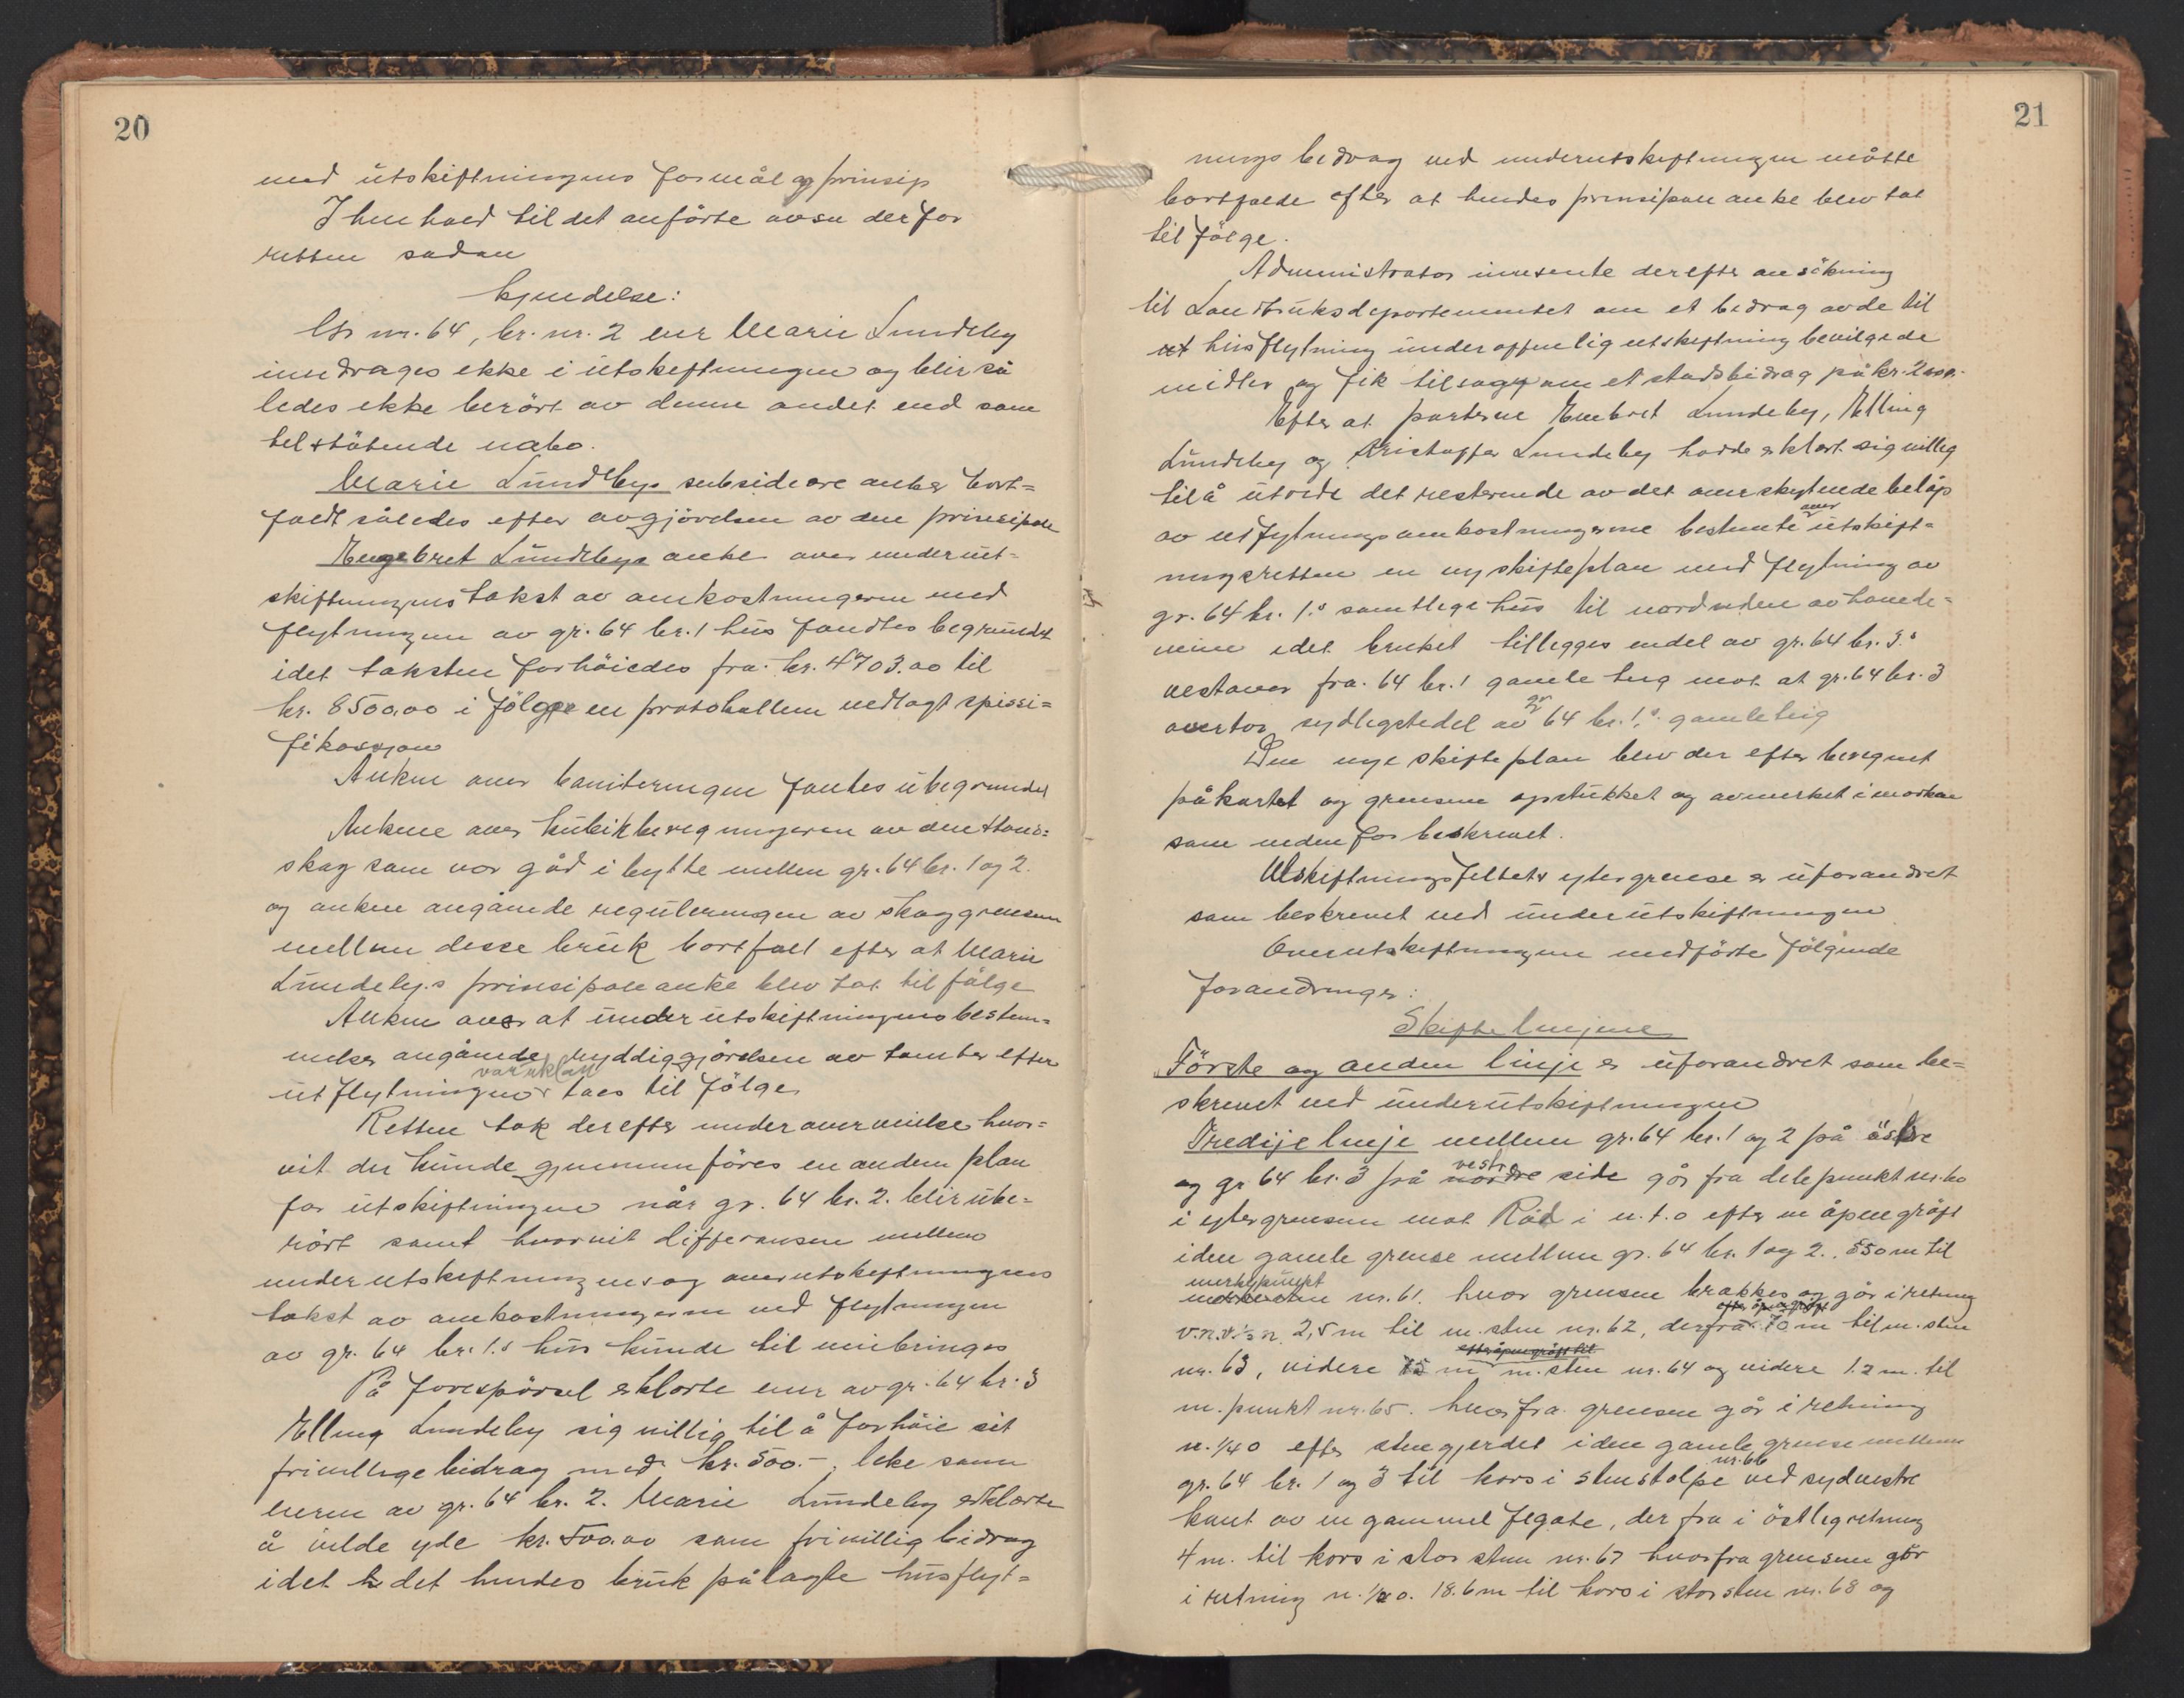 20
med utskiftningens formål og prinsip
I henhold til det anförte avsa derfor
retten sådan
kjendelse:
Gr. nr. 64, br. nr. 2 eier Marie Lundeby
inddrages ikke i utskiftningen og blir så
ledes ikke berört av denne andet end som
tilstötende nabo.
Marie Lundebys subsidiære anker bort=
faldt således efter avgjörelsen av den prinsipale
Engebret Lundebys anke over underut-
skiftningens takst av omkostningerne med
flytningen av gr. 64 br. 1 hus fandtes begrundet
idet taksten forhöiedes fra kr. 4703.00 til
kr. 8500.00 i fölge en protokollen vedlagt spissi=
fikassjon
Anken over boniteringen fandtes ubegrundet
Ankene over kubikberegningeren av den
skog som var gåd i bytte mellem gr. 64 br. 1 og 2.
og anken angående reguleringen av skoggrensen
mellem disse bruk bortfalt efter at Marie
Lundeby.s prinsipale anke blev tat til fölge
Anken over at underutskiftningens bestem=
melser angående ryddiggjörelsen av tomter efter
var uklar
utflytningen taes til fölge.
Retten tok derefter under overveielse hvor=
vit der kunde gjennemföres en anden plan
for utskiftningen når gr. 64 br. 2. blir ube=
rört samt hvorvit differansen mellem
underutskiftningens og overutskiftningens
takst av omkostningerne ved flytningen
av gr. 64 br. 1.s hus kunde tilveiebringes
På forespörsel erklærte eier av gr. 64 br. 3
Elling Lundeby sig villig til å forhöie sit
frivillige bidrag med kr. 500.-, like som
eieren av gr. 64 br. 2. Marie Lundeby erklærte
å vilde yde kr. 500.00 som frivillig bidrag
idet det hendes bruk pålagte husflyt=
21
nings bidrag ved underutskiftningen måtte
bortfalde efter at hendes prinsipale anke blev tat
til fölge.
Administrator innsente derefter ansökning
til Landbruksdepartementet om et bidrag av de til
ut husflytning under offenlig utskiftning bevilgede
midler og fik tilsagn om et statsbidrag på kr. 2000.-
Efter at parterne Embret Lundeby, Elling
Lundeby og Kristoffer Lundeby hadde erklært sig villig
til å utrede det resterende av det overskytende belöp
over
av utflytningsomkostningerne bestemte utskift=
ningsretten en ny skifteplan med flytning av
gr. 64 br. 1.s samtlige hus til nordsiden av hovede-
veien idet bruket tillegges endel av gr. 64 br. 3.s
vestover fra 64 br. 1 gamle teig mot at gr. 64 br. 3
gr
overtar sydligste del av 64 br. 1.s gamle teig
Den nye skifteplan blev der efter beregnet
på kartet og grensene opstukket og avmerket i marken
som nedenfor beskrevet.
Utskiftningsfeltets ytergrense er uforandret
som beskrevet ved underutskiftningen
Overutskiftningen medförte fölgende
forandringer:
Skiftelinjene
Förste og anden linje er uforandret som be=
skrevet ved underutskiftningen
Tredije linje mellem gr. 64 br. 1 og 2 på östre
vestre
og gr 64 br. 3 på nordre side går fra delepunkt nr. 60
i ytergrensen mot Råd i n.t.o efter en åpen gröft
i den gamle grense mellem gr. 64 br. 1 og 2. 550 m til
merkepunkt
nr. 61. hvor grensen brækkes og går i retning
efter åpen gröft
v.n.v. ½ n 2,5 m til m. sten nr. 62, derfra 70 m til m. sten
efter åpen gröft til
nr. 63, videre 15 m m. sten nr. 64 og videre 1.2 m. til
m. punkt nr. 65. hvorfra grensen går i retning
n. ¼ o efter stengjerdet i den gamle grense mellem
nr. 66
gr. 64 br. 1 og 3 til kors i stenstolpe ved sydvestre
kant av en gammel fegate, derfra i östlig retning
4 m. til kors i stor sten nr. 67 hvorfra grensen går
i retning n. ½ o. 18.6 m til kors i stor sten nr. 68 og